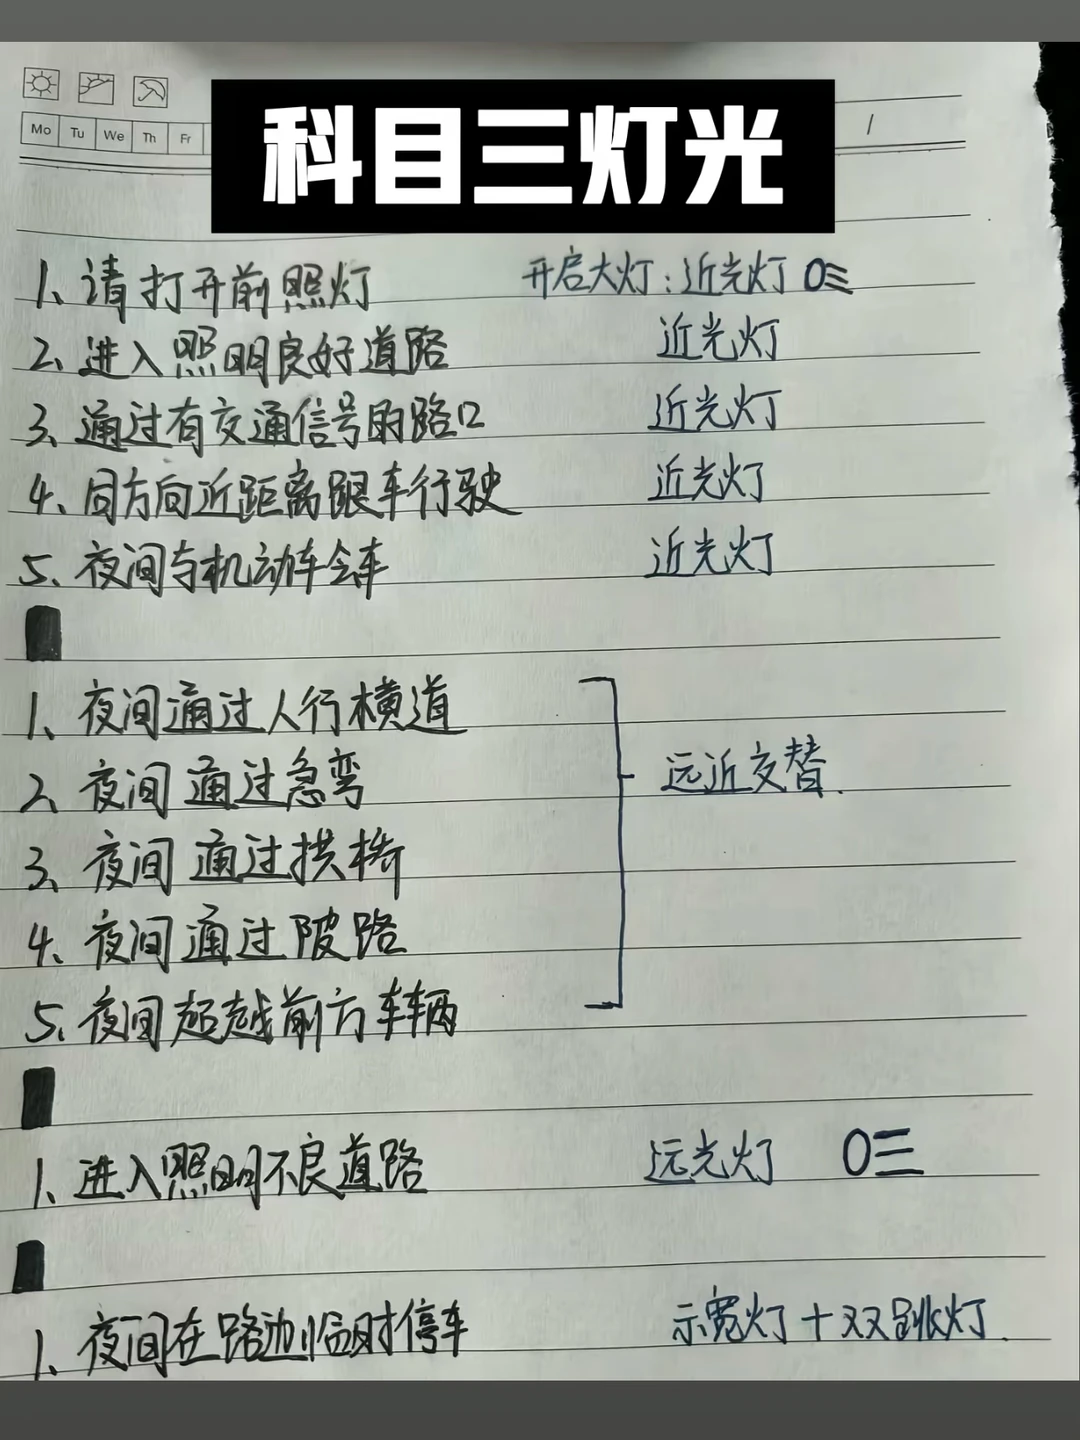 科目三灯光
Mo Tu We Th Fr
1、请打开前照灯 开启大灯：近光灯
2、进入照明良好道路 近光灯
3、通过有交通信号的路口 近光灯
4、同方向近距离跟车行驶 近光灯
5、夜间与机动车会车 近光灯
1、夜间通过人行横道
2、夜间通过急弯
远近交替.
3、夜间通过拱桥
4、夜间通过陂路
5、夜间超越前方车辆
1、进入照明不良道路 远光灯
1、夜间在路边临时停车 示宽灯+双跳灯.